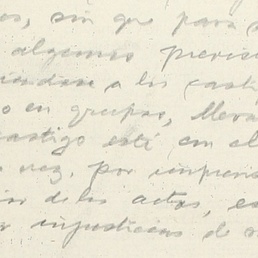 os, sin que para s
algunos previs
iéndose a los casti
o en grupos, lleva
castigo esté em el
vez, por impren
de los actos, es
injusticias de